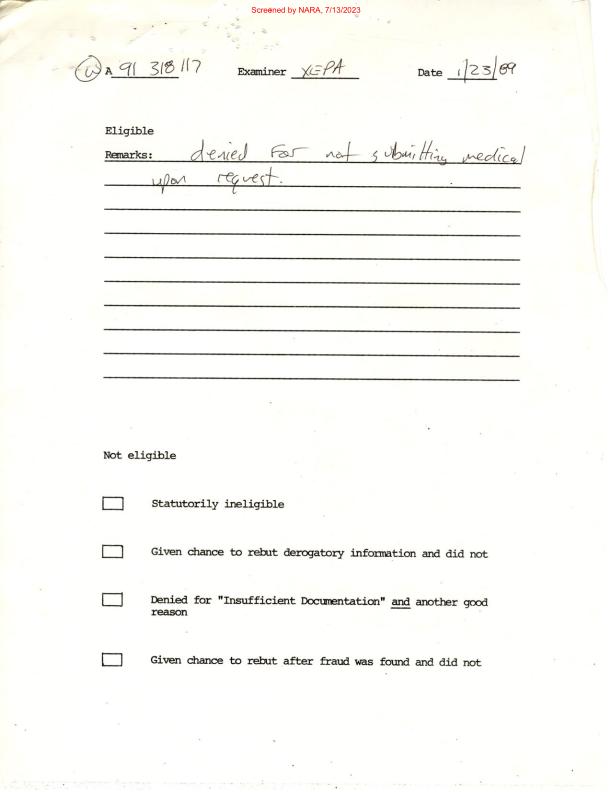 Screened by NARA, 7/13/2023
W A 91 318 117 Examiner XEPA Date 1/23/89
Eligible
Remarks: denied For not submitting medical
upon request.
Not eligible
Statutorily ineligible
Given chance to rebut derogatory information and did not
Denied for "Insufficient Documentation" and another good
reason
Given chance to rebut after fraud was found and did not